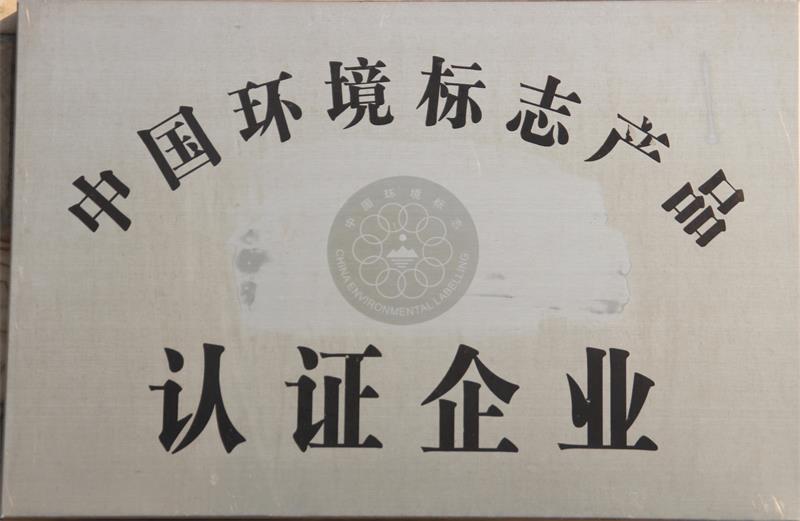 中国环境标志产品
中国环境标志
CHINA ENVIRONMENTAL LABELLING
认证企业